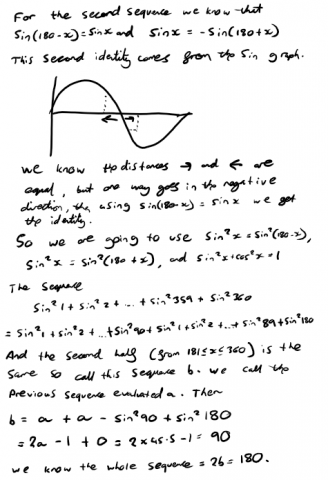 For the second sequence we know that
Sin(180-x)=Sinx and Sinx = -Sin(180+x)
This second identity comes from the Sin graph.
we know the distances → and ← are
equal, but one way goes in the negative
direction, then using Sin(180-x) = sinx we get
the identity.
So we are going to use Sin²x = Sin²(180-x),
Sin²x = Sin²(180+x), and Sin²x+cos²x=1
The sequence
Sin²1 + Sin²2 + ... + Sin²359 + Sin²360
= Sin²1 + Sin²2 + ... + Sin²90 + Sin²1 + Sin²2 + ... + Sin²89 + Sin²180
And the second half (from 181≤x≤360) is the
Same so call this sequence b. we call the
Previous sequence evaluated a. Then
b = a + a - Sin²90 + Sin²180
= 2a - 1 + 0 = 2×45.5-1 = 90
we know the whole sequence = 2b = 180.